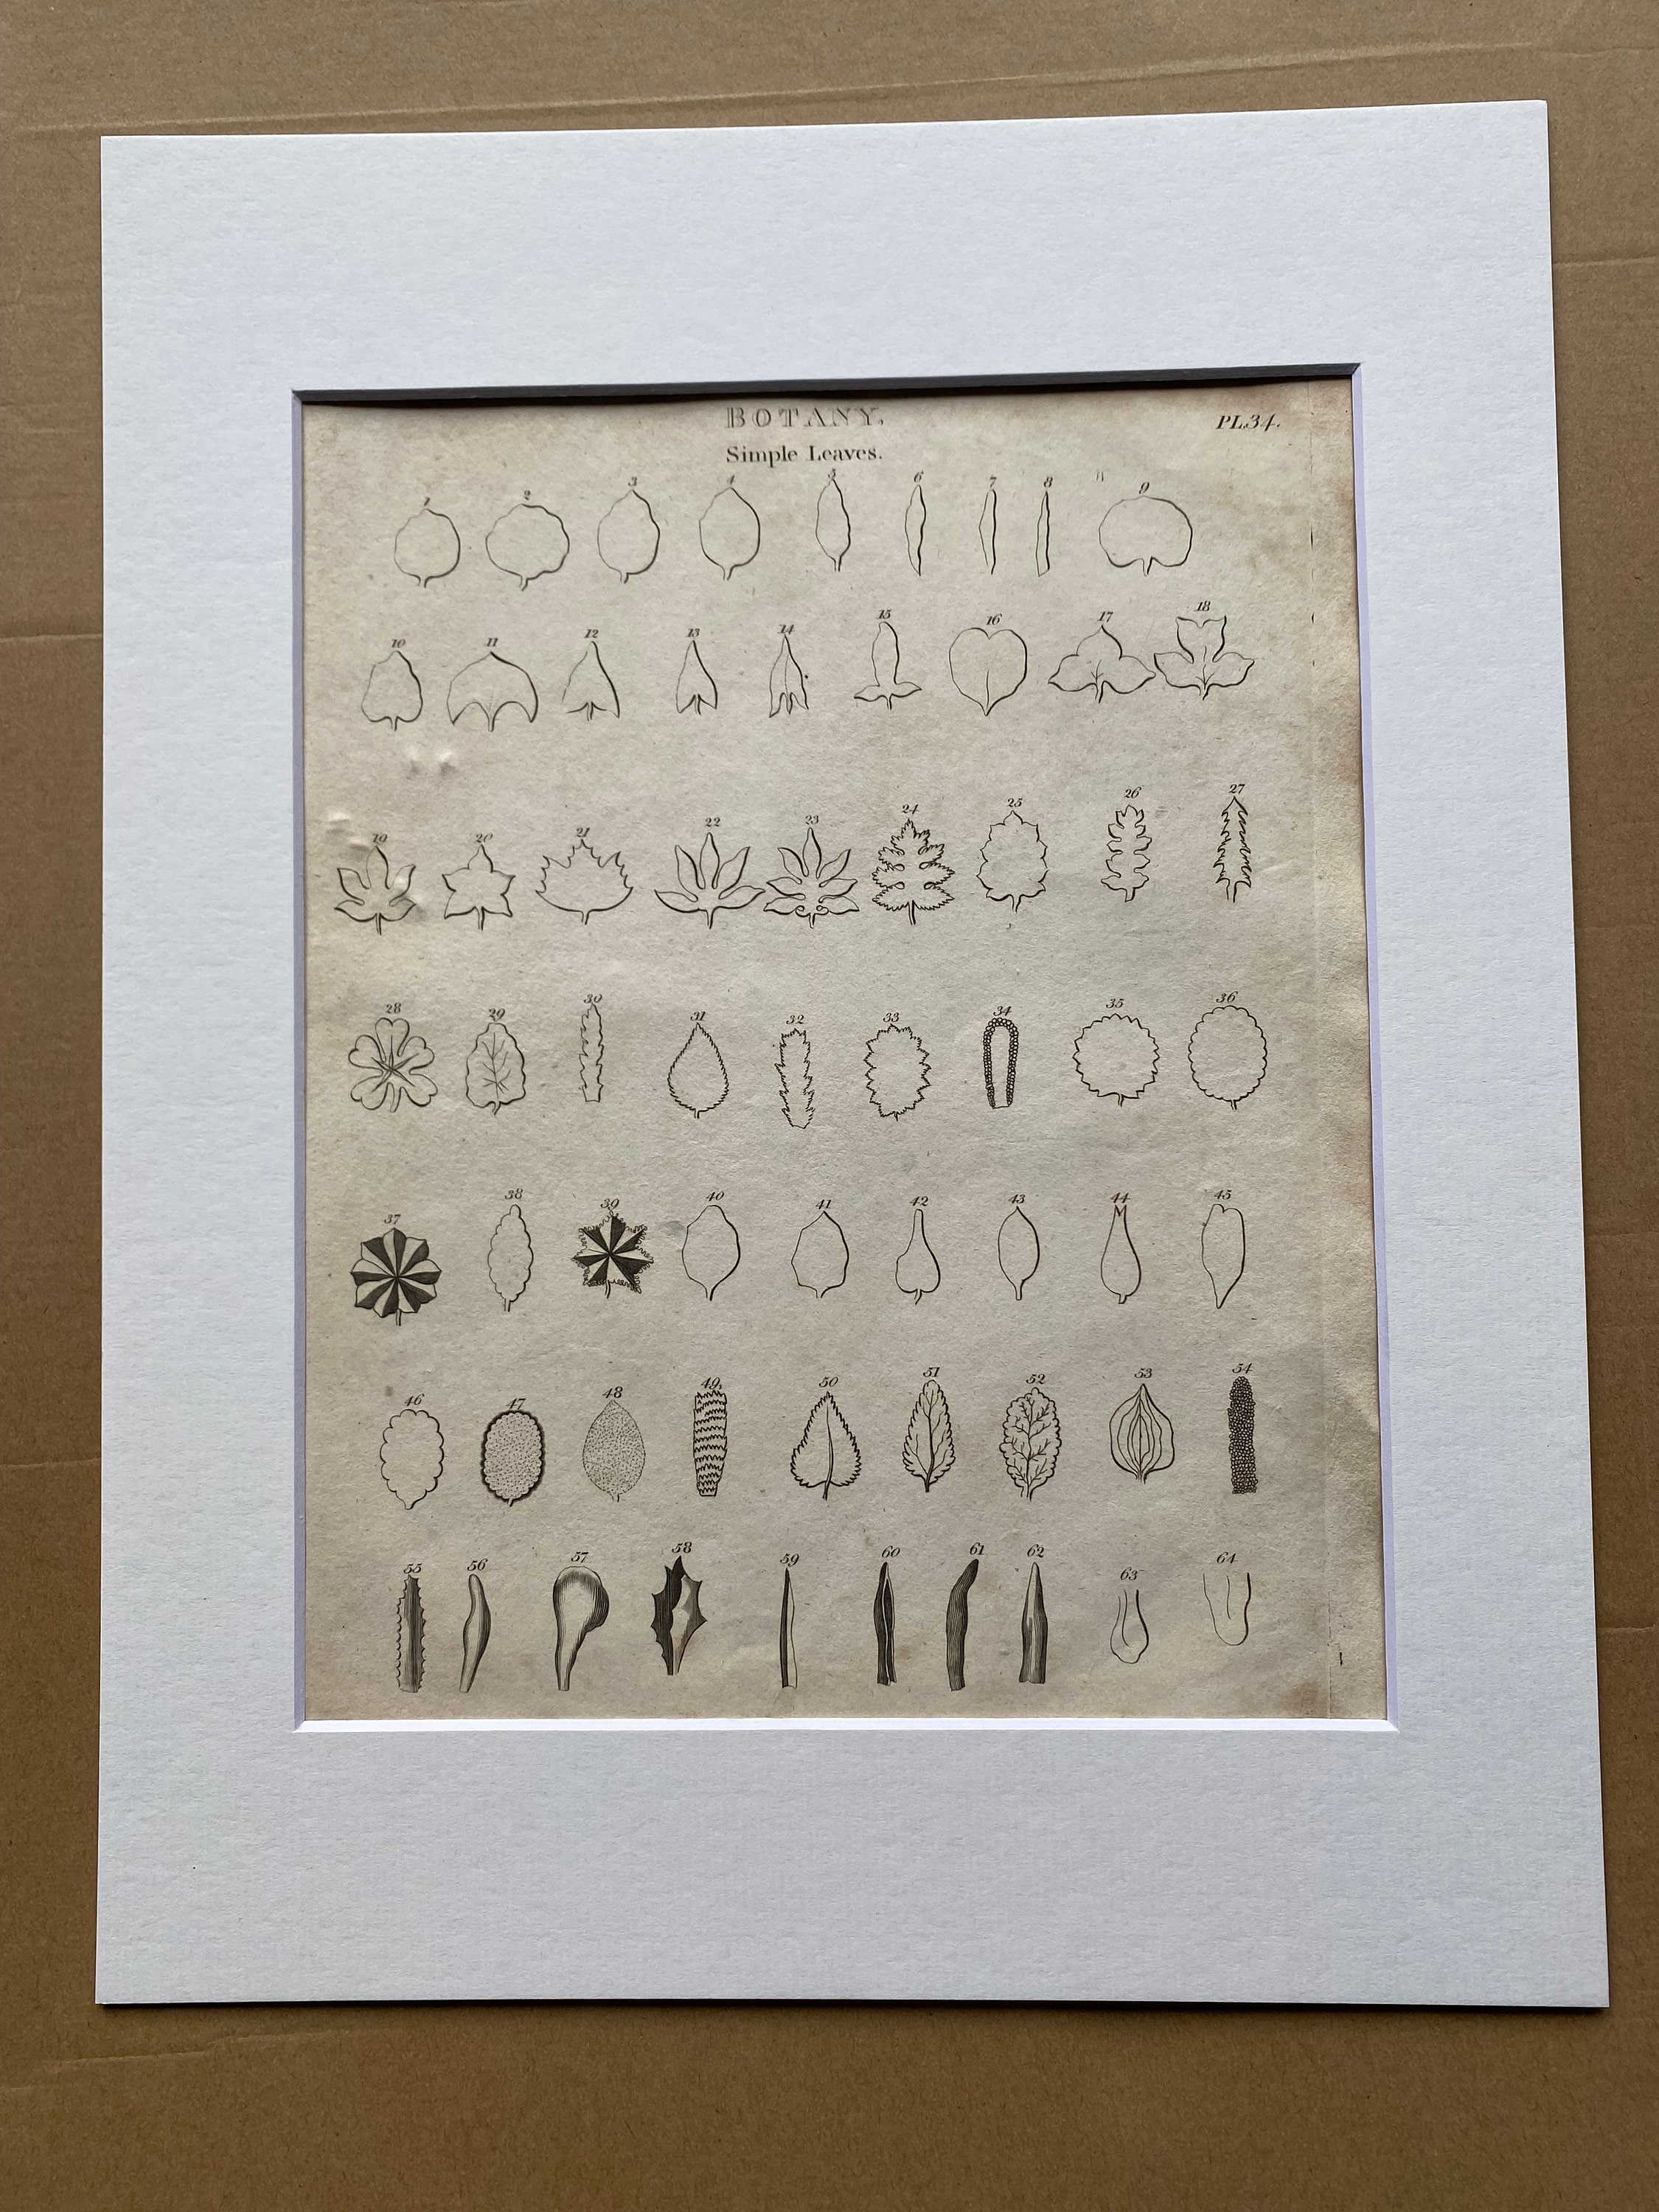 BOTANY.
PL.34.
Simple Leaves.
1 2 3 4 5 6 7 8 9
10 11 12 13 14 15 16 17 18
19 20 21 22 23 24 25 26 27
28 29 30 31 32 33 34 35 36
37 38 39 40 41 42 43 44 45
46 47 48 49 50 51 52 53 54
55 56 57 58 59 60 61 62 63 64